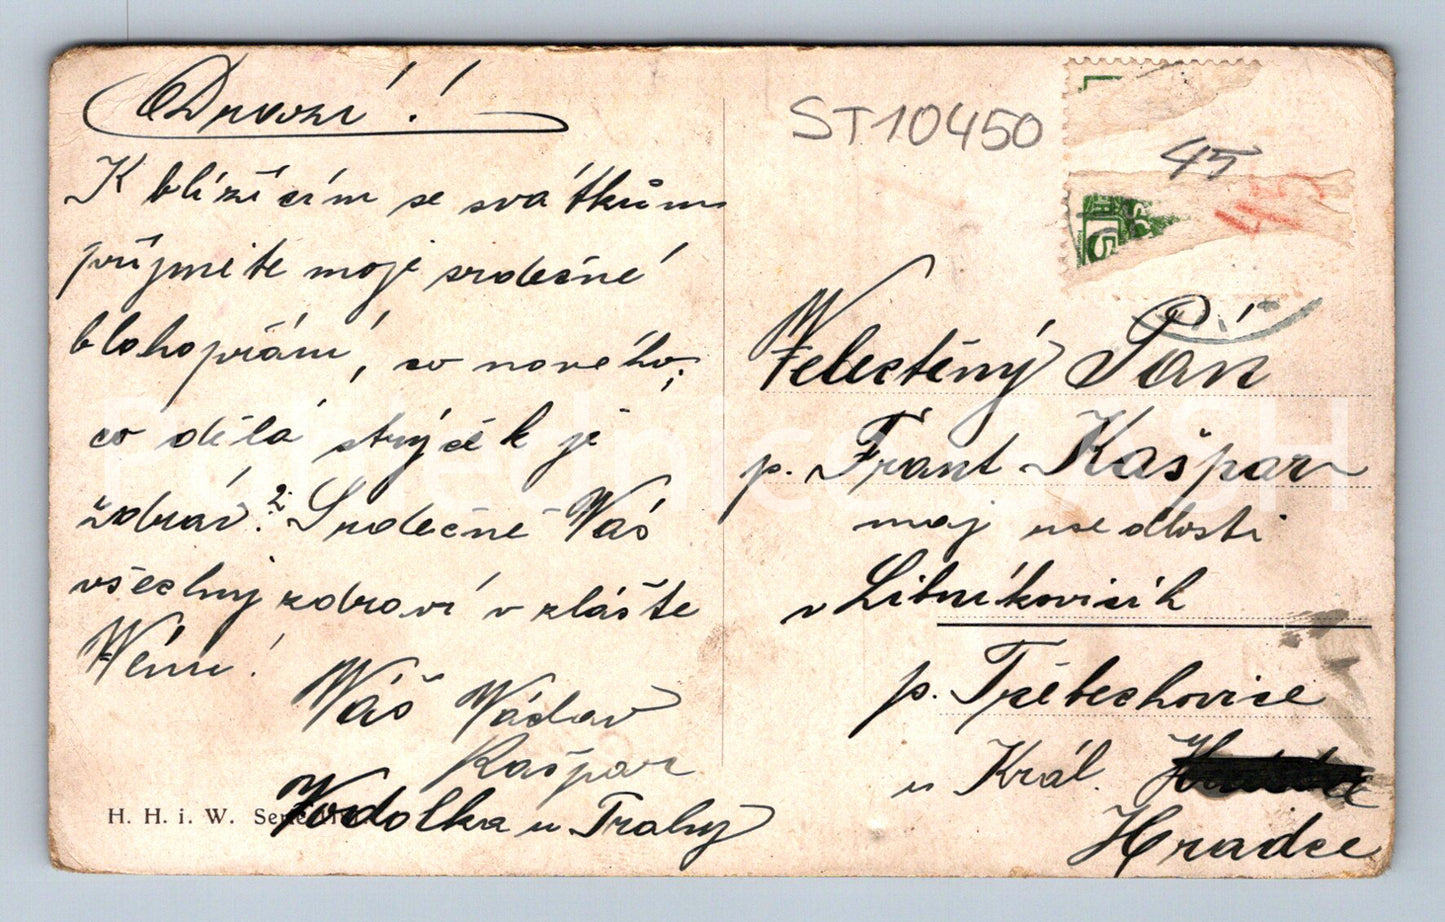 Drazí!
K blížícím se svátkům
přijměte moje srdečné
blahopřání, co nového,
co dělá strýček je
zdráv? Srdečně Váš
všechny zdraví v zláště
Vénu!
Váš Václav
Kašpar
Vodolka u Prahy
H. H. i. W.
ST10450
45
45
5
Velectěný Pán
p. Frant Kašpar
maj usedlosti
v Librníkovicích
p. Třebechovice
u Král.
Hradce
Pohlednice CASH